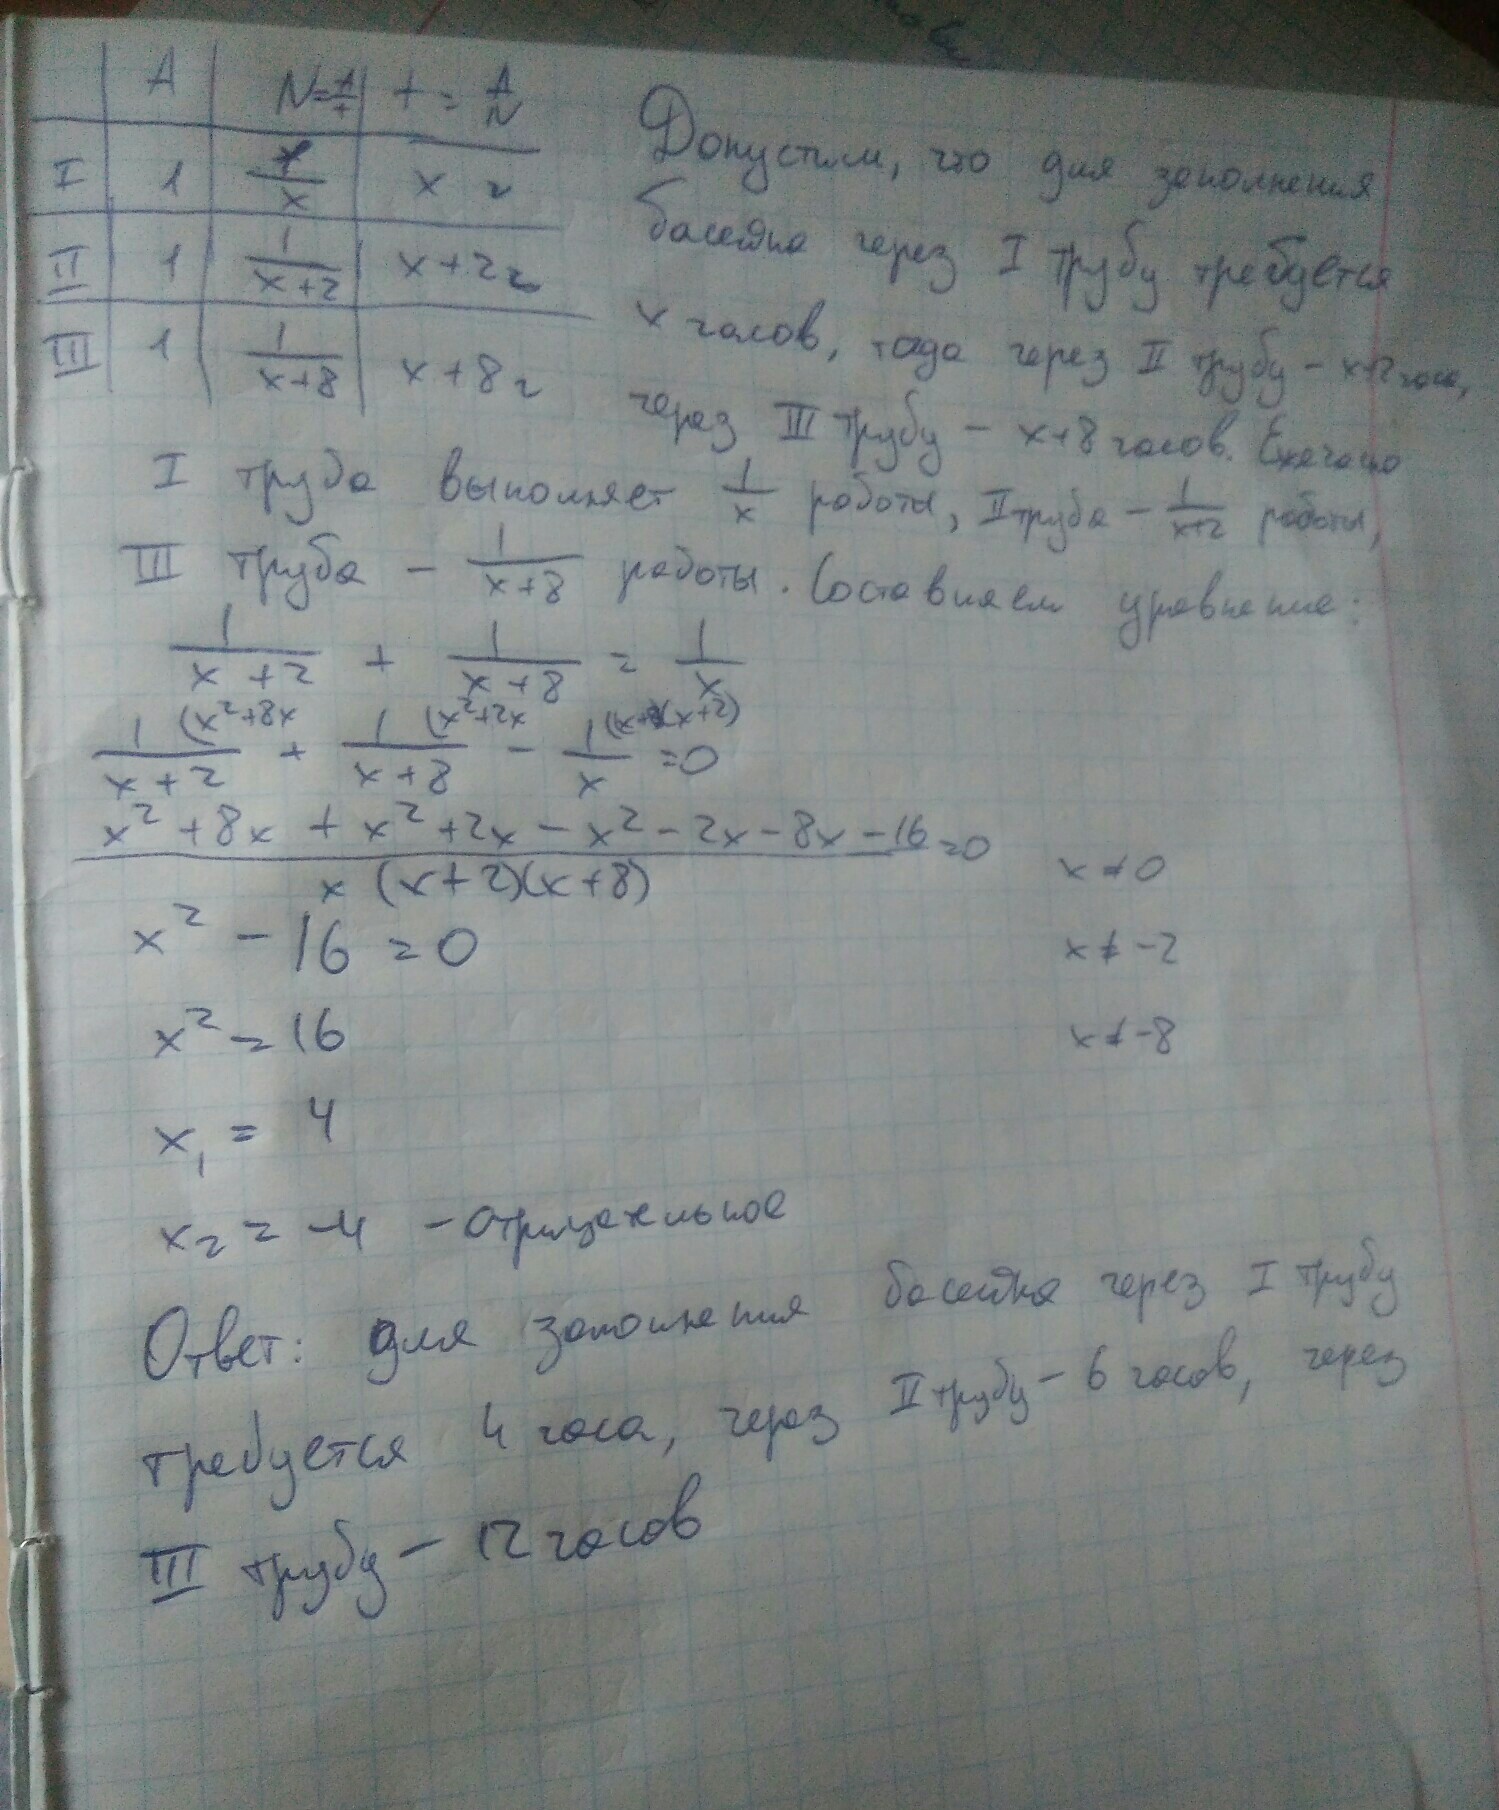 A N=A/t t=A/N
I 1 1/x x ч
II 1 1/(x+2) x+2ч
III 1 1/(x+8) x+8ч
Допустим, что для заполнения
бассейна через I трубу требуется
x часов, тогда через II трубу - x+2 часа,
через III трубу - x+8 часов. Ежечасно
I труба выполняет 1/x работы, II труба - 1/(x+2) работы,
III труба - 1/(x+8) работы. Составляем уравнение:
1/(x+2) + 1/(x+8) = 1/x
1(x²+8x/(x+2) + 1(x²+2x/(x+8) - 1(x+8)(x+2)/x =0
(x²+8x+x²+2x-x²-2x-8x-16)/(x(x+2)(x+8)) =0 x≠0
x²-16=0 x≠-2
x²=16 x≠-8
x₁=4
x₂=-4 - отрицательное
Ответ: для заполнения бассейна через I трубу
требуется 4 часа, через II трубу - 6 часов, через
III трубу - 12 часов